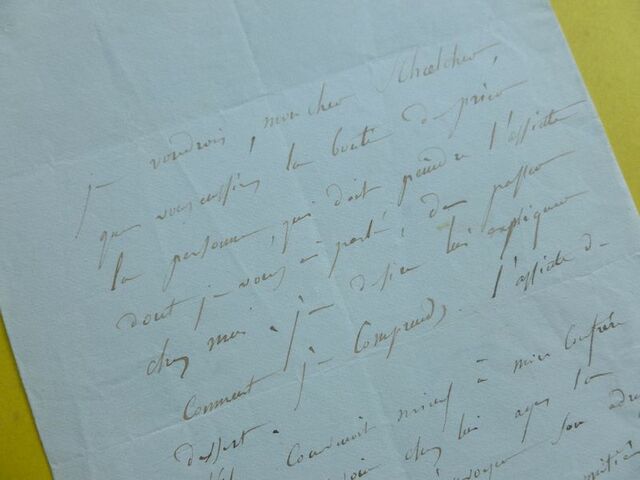 Je voudrois, mon cher Schoelcher,
que vous eussiez la bonté de prier
la personne, qui doit peindre l'assiette
dont je vous ai parlé, de passer
chez moi. Je desire lui expliquer
comment je comprends l'assiette de
dessert.
convenoit mieux à mon confrère
chez lui ayez la
son